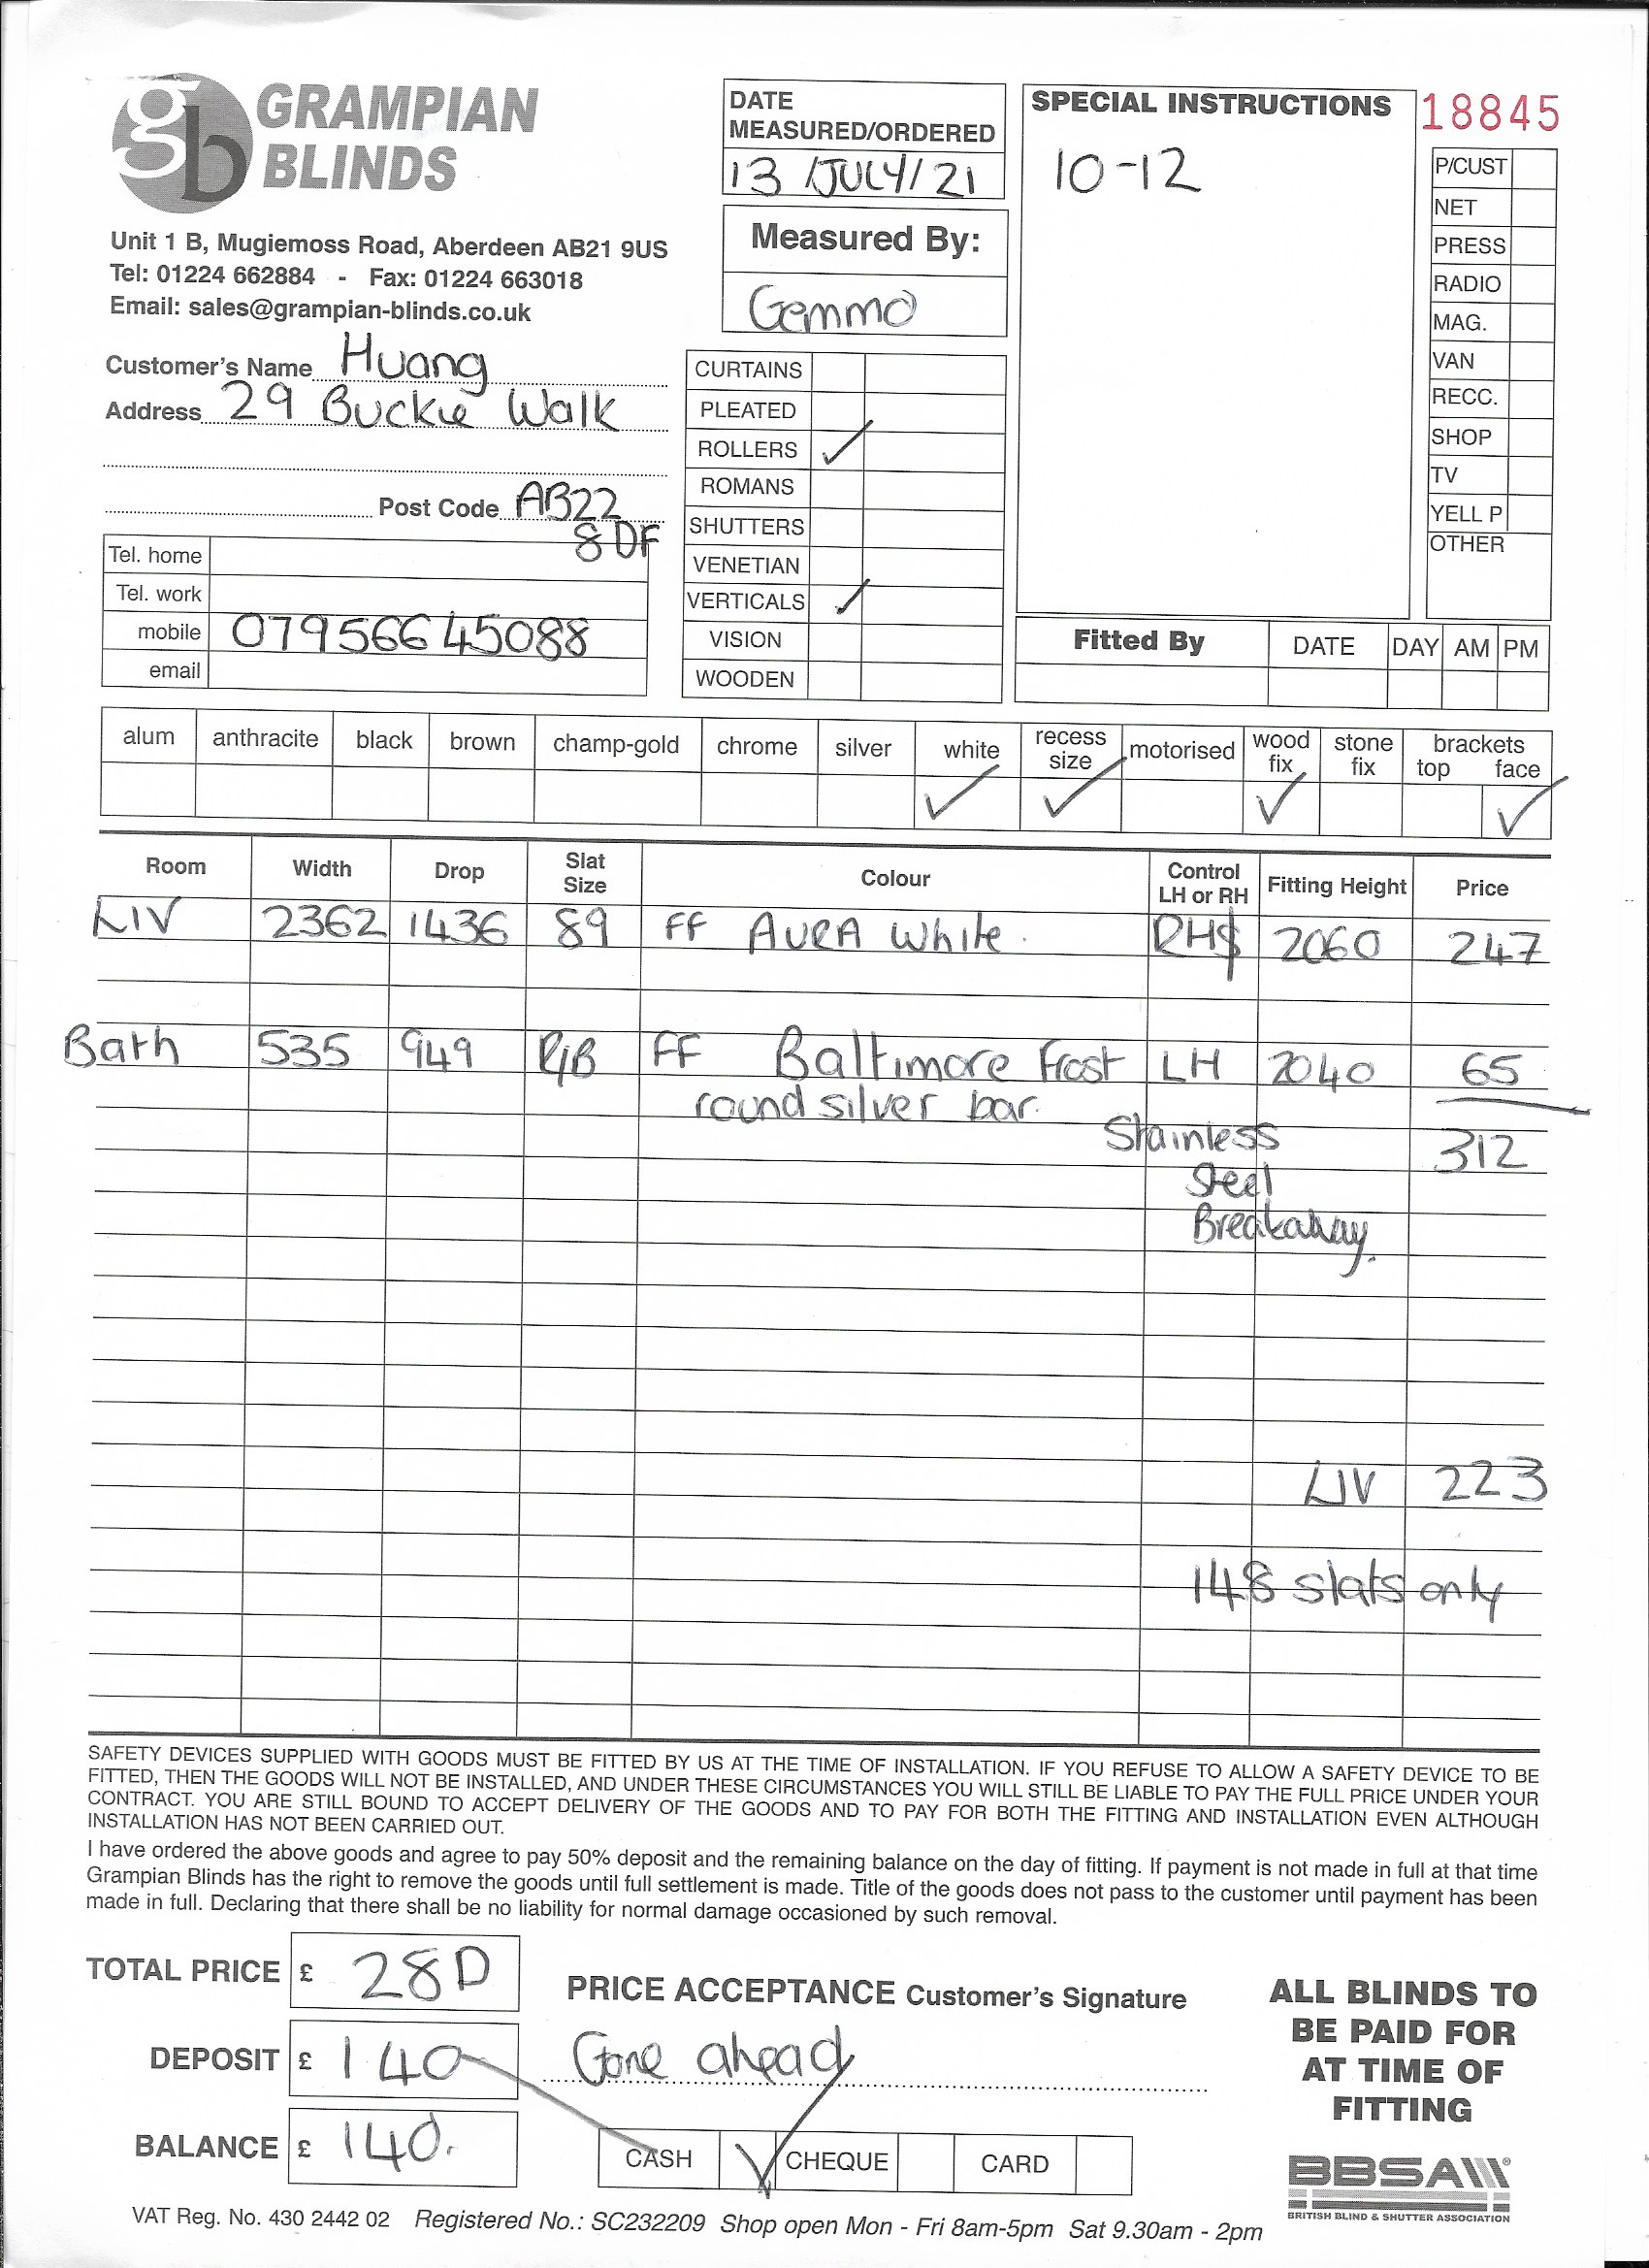 gb GRAMPIAN
BLINDS
Unit 1 B, Mugiemoss Road, Aberdeen AB21 9US
Tel: 01224 662884 - Fax: 01224 663018
Email: sales@grampian-blinds.co.uk
Customer's Name Huang
Address 29 Buckie Walk
Post Code AB22
8DF
Tel. home
Tel. work
mobile 07956645088
email
DATE
MEASURED/ORDERED
13/JULY/21
Measured By:
Gemma
CURTAINS
PLEATED
ROLLERS ✓
ROMANS
SHUTTERS
VENETIAN
VERTICALS ✓
VISION
WOODEN
SPECIAL INSTRUCTIONS
10-12
18845
P/CUST
NET
PRESS
RADIO
MAG.
VAN
RECC.
SHOP
TV
YELL P
OTHER
Fitted By DATE DAY AM PM
alum anthracite black brown champ-gold chrome silver white recess size motorised wood fix stone fix brackets top face
✓ ✓ ✓ ✓
Room Width Drop Slat Size Colour Control LH or RH Fitting Height Price
LIV 2362 1436 89 FF AURA White. RH$ 2060 247
Bath 535 949 R/B FF Baltimore Frost LH 2040 65
round silver bar.
Stainless 312
Steel
Breakaway.
LIV 223
148 slats only
SAFETY DEVICES SUPPLIED WITH GOODS MUST BE FITTED BY US AT THE TIME OF INSTALLATION. IF YOU REFUSE TO ALLOW A SAFETY DEVICE TO BE
FITTED, THEN THE GOODS WILL NOT BE INSTALLED, AND UNDER THESE CIRCUMSTANCES YOU WILL STILL BE LIABLE TO PAY THE FULL PRICE UNDER YOUR
CONTRACT. YOU ARE STILL BOUND TO ACCEPT DELIVERY OF THE GOODS AND TO PAY FOR BOTH THE FITTING AND INSTALLATION EVEN ALTHOUGH
INSTALLATION HAS NOT BEEN CARRIED OUT.
I have ordered the above goods and agree to pay 50% deposit and the remaining balance on the day of fitting. If payment is not made in full at that time
Grampian Blinds has the right to remove the goods until full settlement is made. Title of the goods does not pass to the customer until payment has been
made in full. Declaring that there shall be no liability for normal damage occasioned by such removal.
TOTAL PRICE £ 280
DEPOSIT £ 140
BALANCE £ 140.
PRICE ACCEPTANCE Customer's Signature
Gone ahead
CASH ✓ CHEQUE CARD
ALL BLINDS TO
BE PAID FOR
AT TIME OF
FITTING
BBSA
BRITISH BLIND & SHUTTER ASSOCIATION
VAT Reg. No. 430 2442 02 Registered No.: SC232209 Shop open Mon - Fri 8am-5pm Sat 9.30am - 2pm